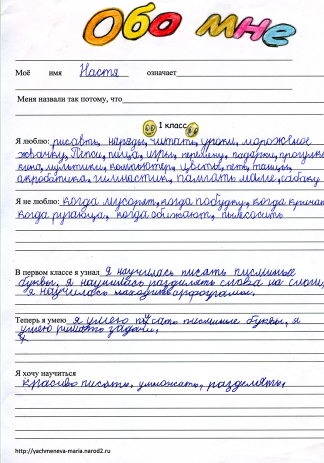 Обо мне
Моё имя Настя означает
Меня назвали так потому, что
1 класс
Я люблю: рисовать, наряды, читать, уроки, мороженое
жвачку, Пепси, пицца, игры, перемену, подарки, прогулки
кино, мультики, компьютер, цветы, петь, танцы,
акробатика, гимнастик, помогать маме, собаку
Я не люблю: когда мусорят, когда побудку, когда кричат
когда ругаюца, когда обижают, пылесосить
В первом классе я узнал я научилась писать писминые
буквы, я научилась разделять слова на слоги,
я научилась находить арфограмы.
Теперь я умею я умею писать писминые буквы, я
умею решать задачи.
Я хочу научиться
красиво писать, умножать, разделять.
http://yachmeneva-maria.narod2.ru